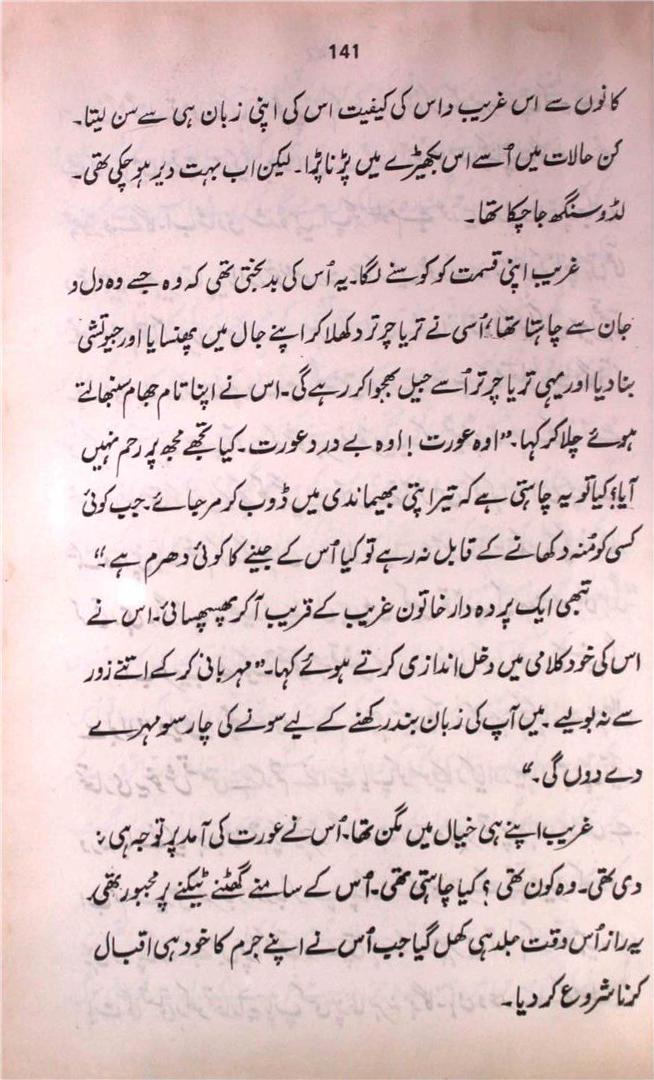 141
کانوں سے اس غریب داس کی کیفیت اس کی اپنی زبان ہی سے سن لیتا۔
کن حالات میں اُسے اس بکھیڑے میں پڑنا پڑا۔ لیکن اب بہت دیر ہو چکی تھی۔
لڈو سنگھ جا چکا تھا۔
غریب اپنی قسمت کو کوسنے لگا۔ یہ اُس کی بدبختی تھی کہ وہ جسے وہ دل و
جان سے چاہتا تھا، اُسی نے تریا چرتر دکھلا کر اپنے جال میں پھنسایا اور جیوتشی
بنا دیا اور یہی تریا چرتر اُسے جیل بھجوا کر رہے گی۔ اس نے اپنا تام جھام سنبھالتے
ہوئے چلا کر کہا۔ ”اوہ عورت! اوہ بے درد عورت۔ کیا تجھے مجھ پر رحم نہیں
آیا؟ کیا تو یہ چاہتی ہے کہ تیرا پتی بھیما ندی میں ڈوب کر مر جائے۔ جب کوئی
کسی کو مُنہ دکھانے کے قابل نہ رہے تو کیا اُس کے جینے کا کوئی دھرم ہے۔“
تبھی ایک پردہ دار خاتون غریب کے قریب آ کر پھسپھسائی۔ اس نے
اس کی خود کلامی میں دخل اندازی کرتے ہوئے کہا۔ ”مہربانی کر کے اتنے زور
سے نہ بولیے۔ میں آپ کی زبان بند رکھنے کے لیے سونے کی چار سو مہرے
دے دوں گی۔“
غریب اپنے ہی خیال میں مگن تھا۔ اُس نے عورت کی آمد پر توجہ ہی نہ
دی تھی۔ وہ کون تھی؟ کیا چاہتی تھی۔ اُس کے سامنے گھٹنے ٹیکنے پر مجبور تھی۔
یہ راز اُس وقت جلد ہی کھل گیا جب اُس نے اپنے جرم کا خود ہی اقبال
کرنا شروع کر دیا۔